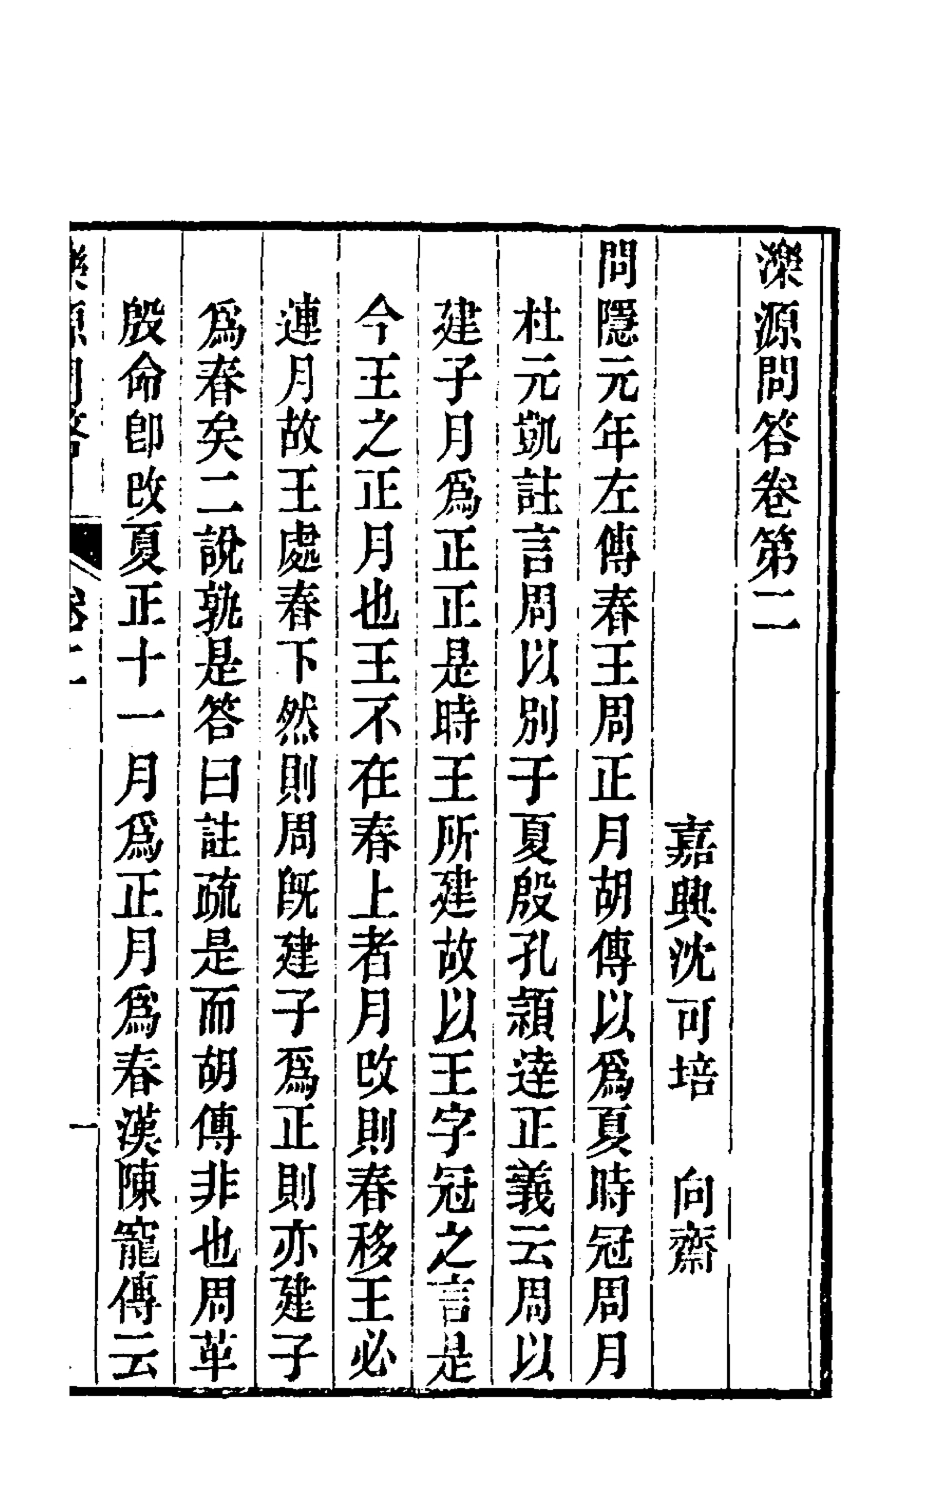 濼源問答卷第二
嘉興沈可培　向齋
問隱元年左傳春王周正月胡傳以爲夏時冠周月
杜元凱註言周以別于夏殷孔頴達正義云周以
建子月爲正正是時王所建故以王字冠之言是
今王之正月也王不在春上者月改則春移王必
連月故王處春下然則周旣建子爲正則亦建子
爲春矣二說孰是答曰註疏是而胡傳非也周革
殷命卽改夏正十一月爲正月爲春漢陳寵傳云
濼源問答
卷二
一